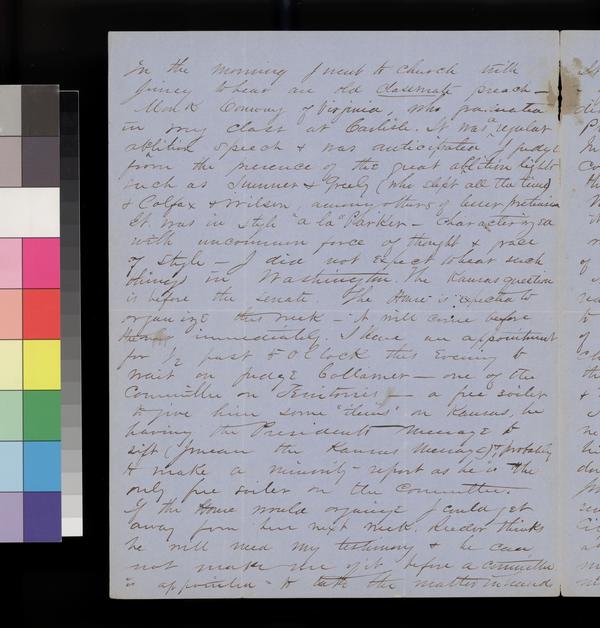 In the morning I went to church with
Jinny to hear an old classmate preach —
Monk Conway of Virginia, who graduated
in my class at Carlisle. It was a regular
abolition speech & was anticipated I judge
from the presence of the great abolition lights
such as Sumner & Greely (who slept all the time)
& Colfax & Wilson, among others of lesser pretensions
It was in style "a la" Parker — characterized
with uncommon force of thought & grace
of style — I did not expect to hear such
things in Washington. The Kansas question
is before the Senate. The House is expected to
organize this week — it will come before
them immediately. I have an appointment
for ½ past 8 O'Clock this Evening to
wait on Judge Collamer — one of the
Committee on Territories — a free soiler
to give him some "items" on Kansas, he
having the President's Message to
sift (I mean the Kansas Message) & probably
to make a minority report as he is the
only free soiler on the Committee.
If the House would organize I could get
away from here next week. Reeder thinks
he will need my testimony & he can
not make use of it before a committee
is appointed to take the matter in hand